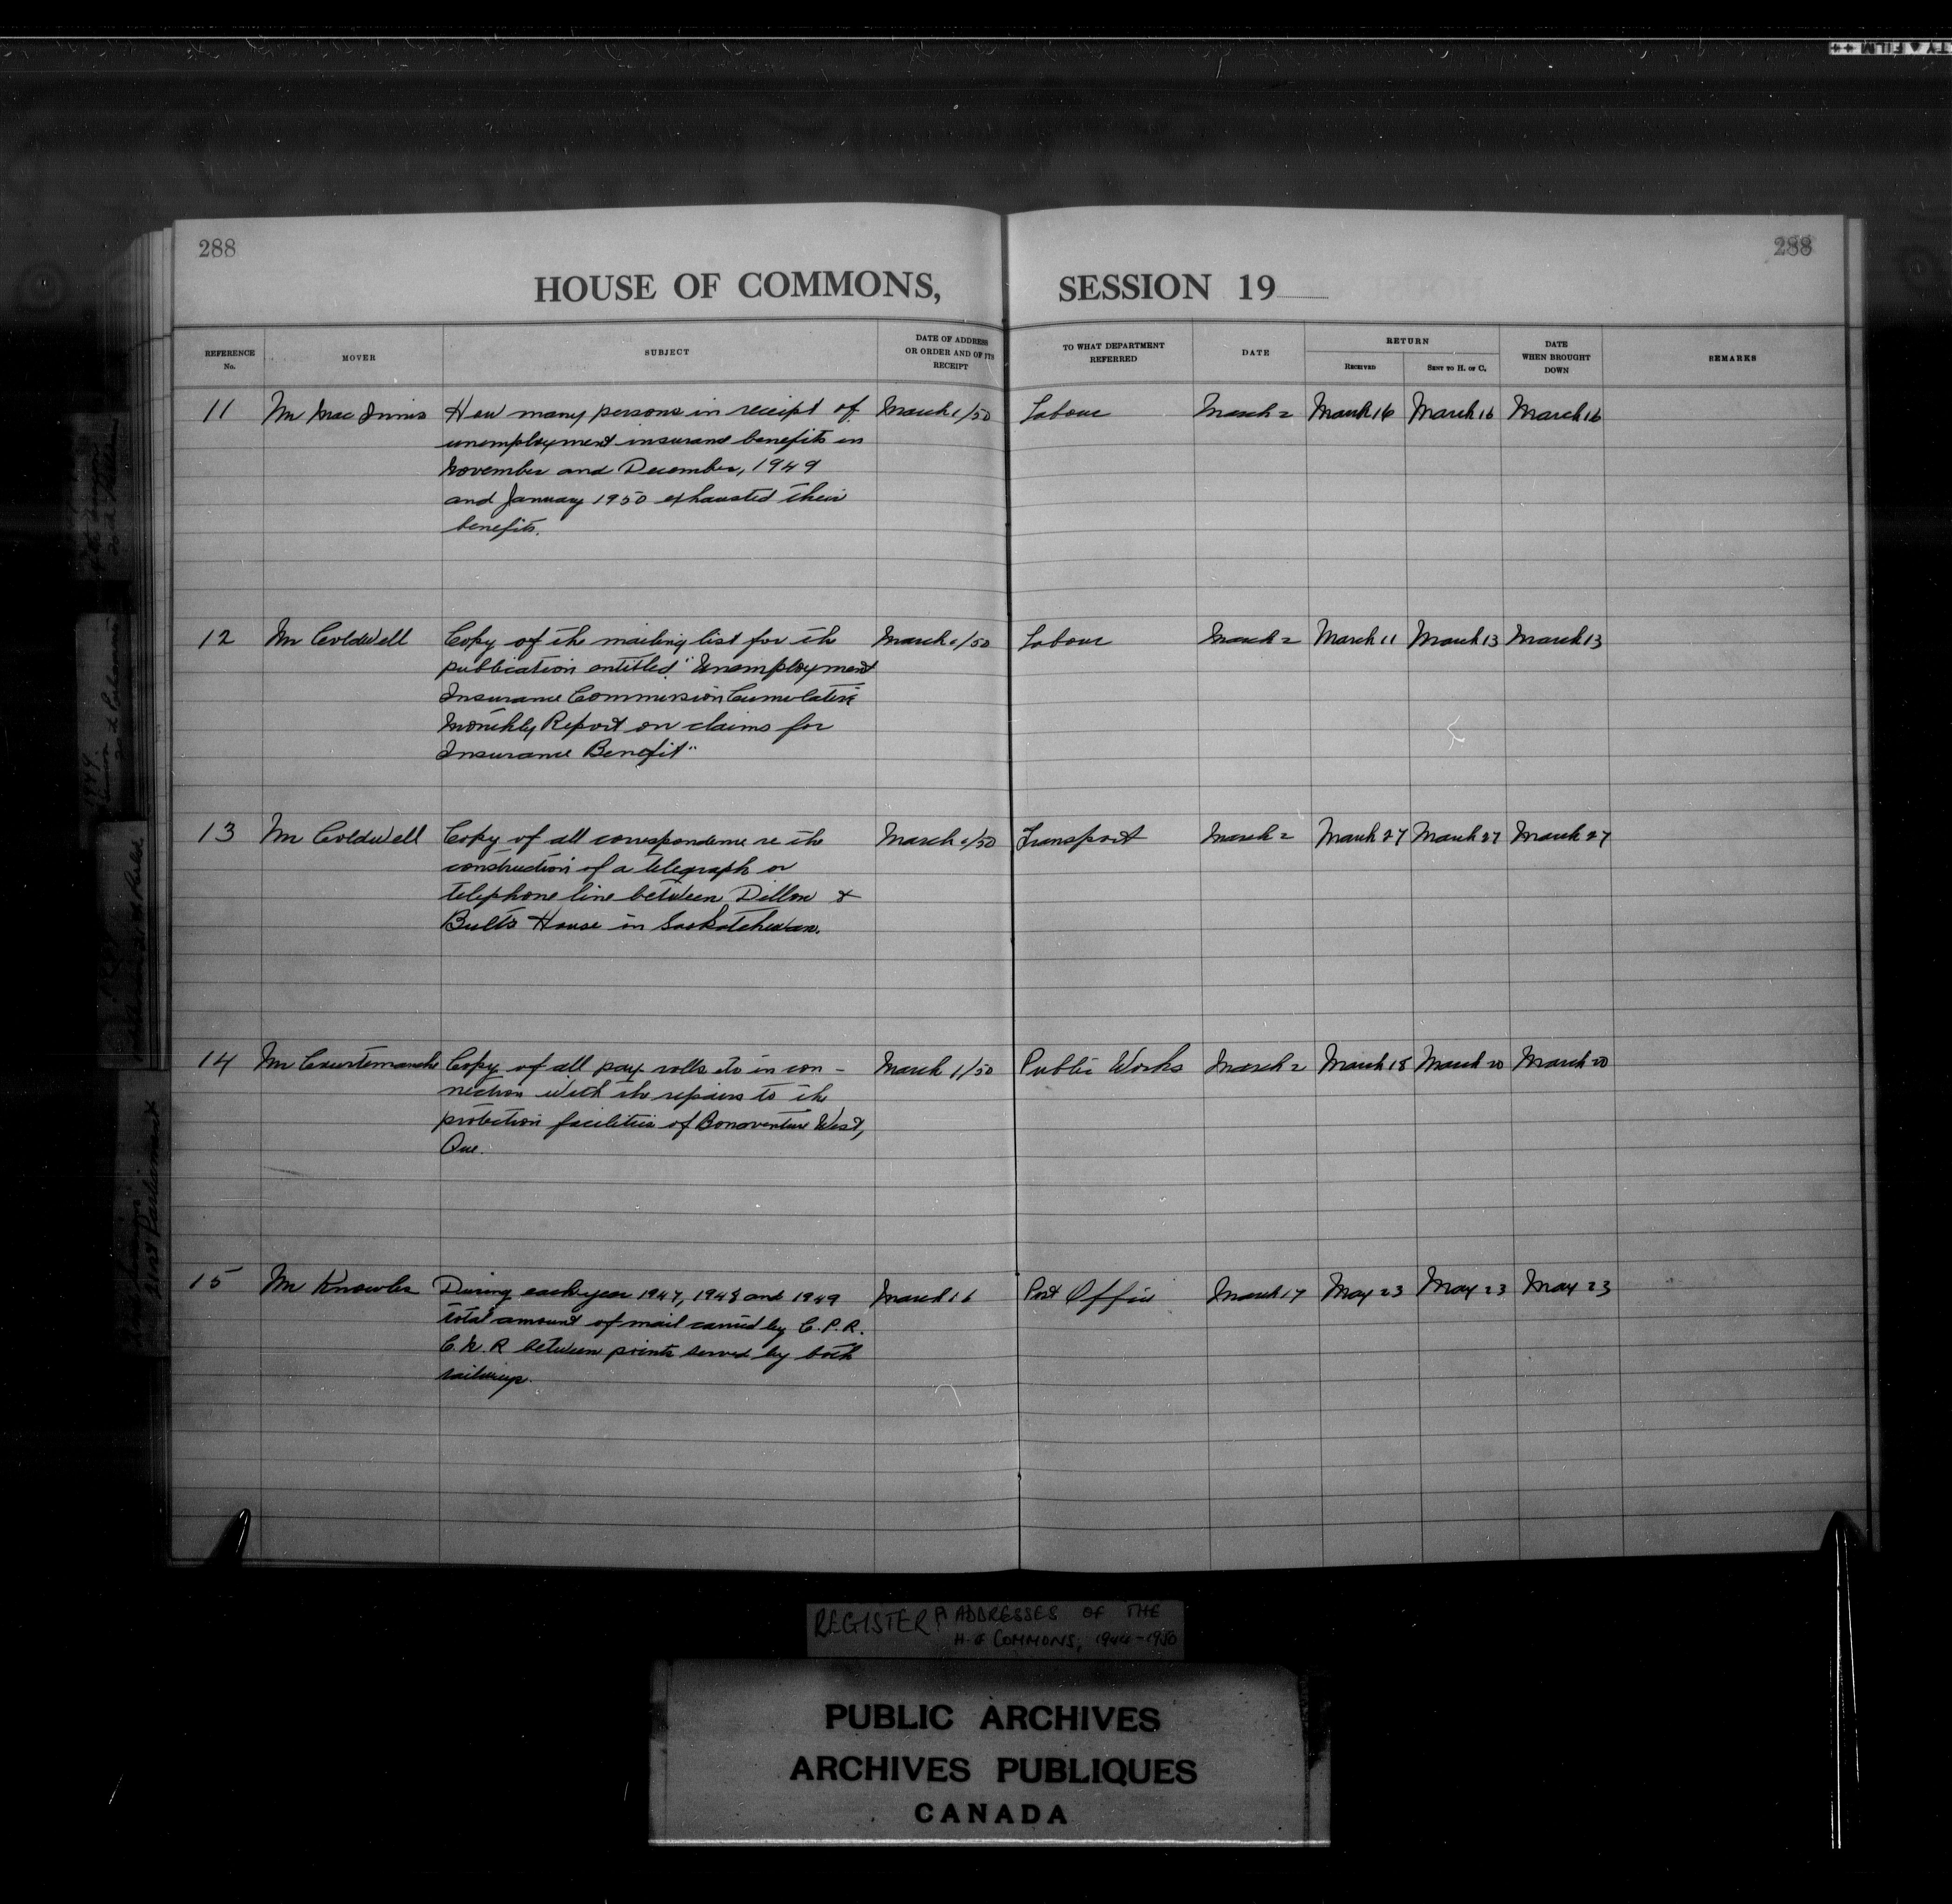 288
288
HOUSE OF COMMONS, SESSION 19
REFERENCE No.
MOVER
SUBJECT
DATE OF ADDRESS OR ORDER AND OF ITS RECEIPT
TO WHAT DEPARTMENT REFERRED
DATE
RETURN
RECEIVED
SENT TO H. OF C.
DATE WHEN BROUGHT DOWN
REMARKS
11 Mr Mac Innis How many persons in receipt of March 1/50 Labour March 2 March 16 March 16 March 16
unemployment insurance benefits in
November and December, 1949
and January 1950 exhausted their
benefits.
12 Mr Coldwell Copy of the mailing list for the March 1/50 Labour March 2 March 11 March 13 March 13
publication entitled "Unemployment
Insurance Commission Cumulative
Monthly Report on claims for
Insurance Benefit"
13 Mr Coldwell Copy of all correspondence re the March 1/50 Transport March 2 March 27 March 27 March 27
construction of a telegraph or
telephone line between Dillon &
Bull's House in Saskatchewan.
14 Mr Courtemanche Copy of all pay rolls etc in con- March 1/50 Public Works March 2 March 18 March 20 March 20
nection with the repairs to the
protection facilities of Bonaventure West,
Que.
15 Mr Knowles During each year 1947, 1948 and 1949 March 16 Post Office March 17 May 23 May 23 May 23
total amount of mail carried by C.P.R.
C.N.R between points served by both
railways.
REGISTER OF ADDRESSES OF THE
H. OF COMMONS, 1944-1950
PUBLIC ARCHIVES
ARCHIVES PUBLIQUES
CANADA